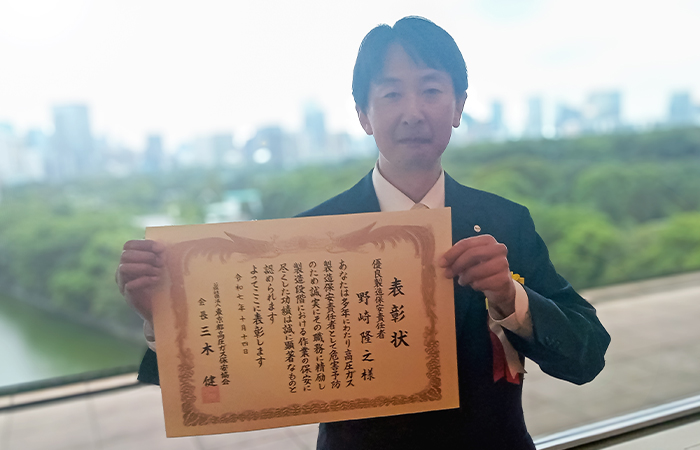 表彰状
優良製造保安責任者
野崎隆之様
あなたは多年にわたり高圧ガス
製造保安責任者として危害予防
のため誠実にその職務に精励し
製造段階における作業の保安に
尽くした功績は誠に顕著なものと
認められます
よってここに表彰します
令和七年十月十四日
東京都高圧ガス保安協会
会長 三木 健